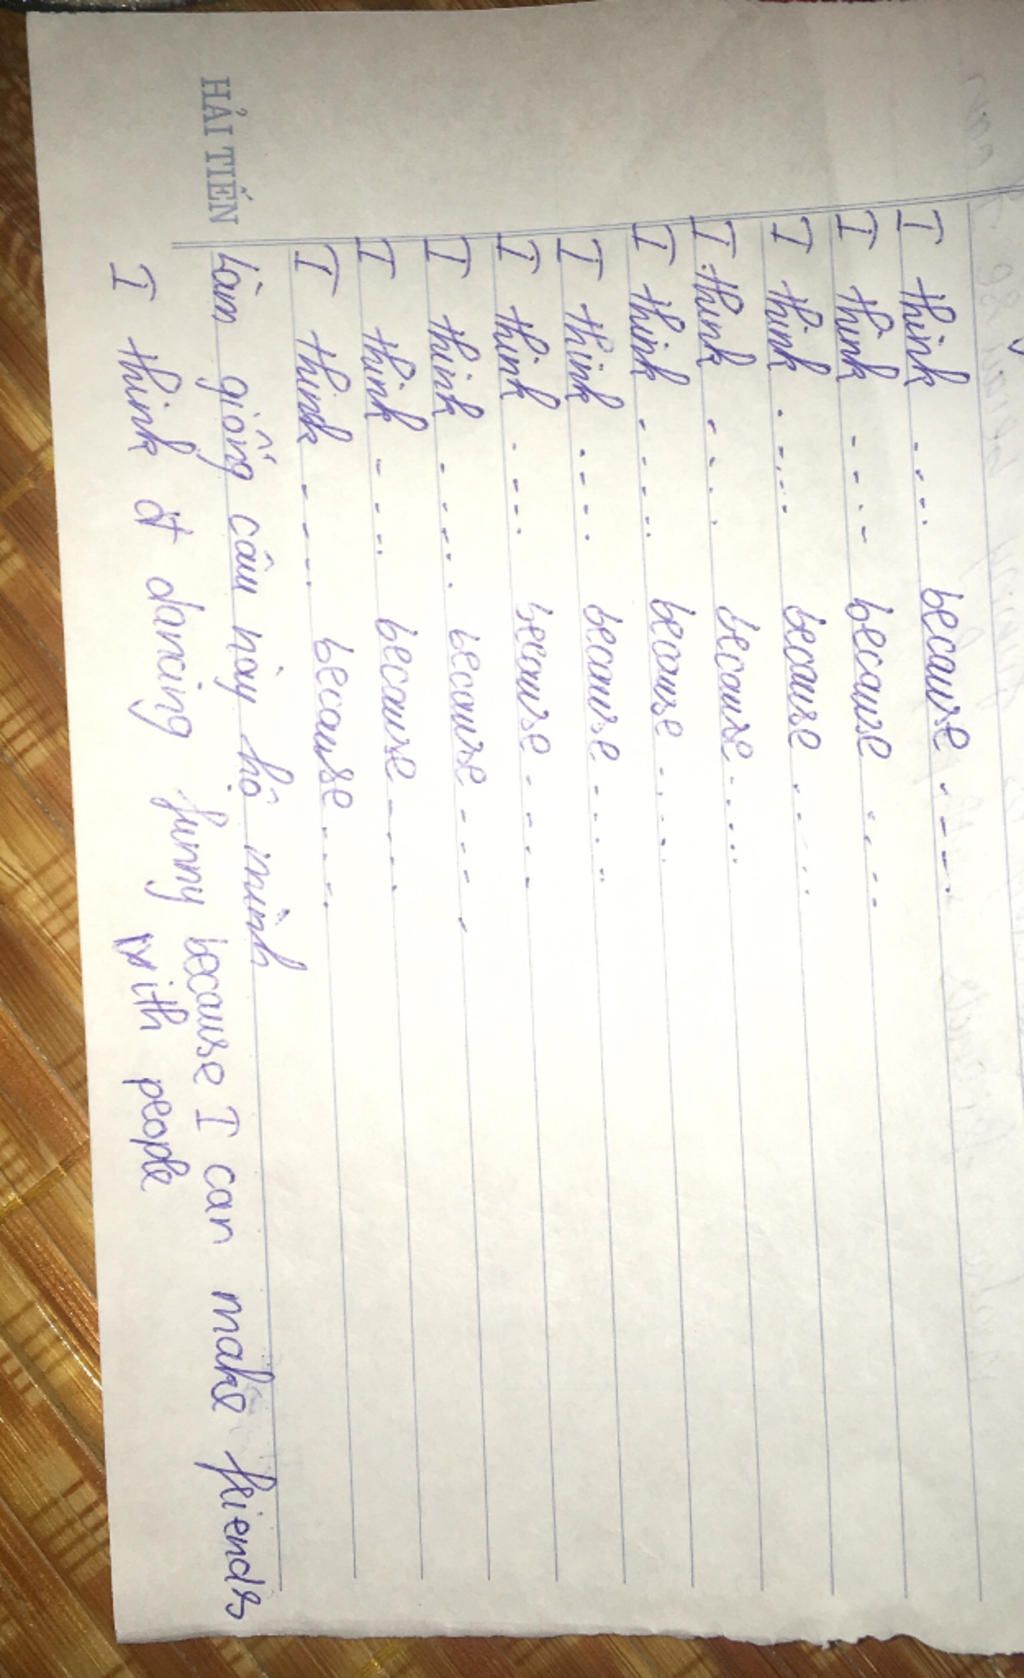 I think .... because ....
I think .... because ....
I think .... because ....
I think .... because ....
I think ..... because ....
I think .... because ....
I think .... because ....
I think .... because ....
I think .... because ....
I think .... because ....
HẢI TIẾN
Làm giống câu này hộ mình
I think dancing funny because I can make friends
with people